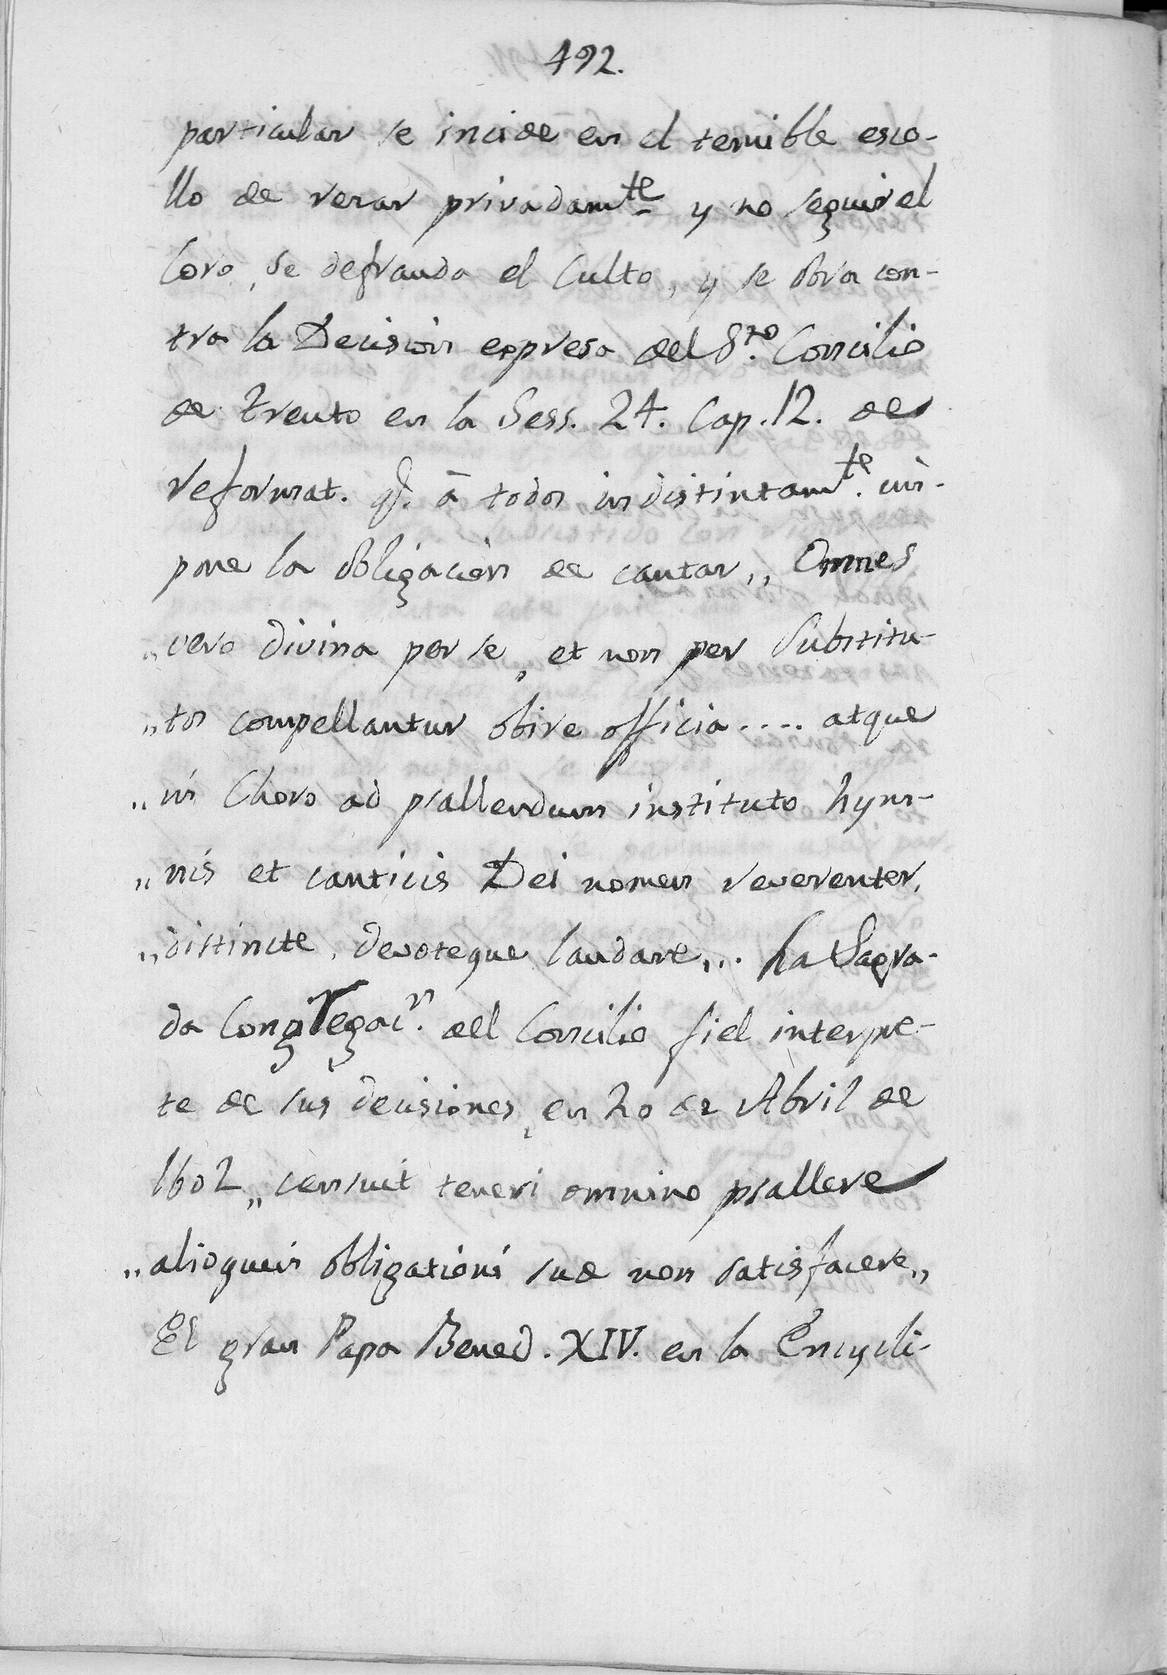 492.
particular se incide en el temible esco-
llo de rezar privadamte y no seguir el
Coro, se defrauda el Culto, y se obra con-
tra la Decision expresa del Sto. Concilio
de Trento en la Sess. 24. Cap. 12. de
reformat. q. â todos indistintamte. im-
pone la obligaciòn de cantar,, Omnes
,,vero divina per se, et non per Substitu-
,,tos compellantur obire officia.... atque
,,in Choro ad psallendum instituto hym-
,,nis et canticis Dei nomen reverenter,
,,distincte, devoteque laudare,... La Sagra-
da Congregacn. del Concilio fiel interpre-
te de sus decisiones, en 20 de Abril de
1602,, censuit teneri omnino psallere
,,alioquin obligationi suæ non satisfacere,,
El gran Papa Bened. XIV. en la Encycli-